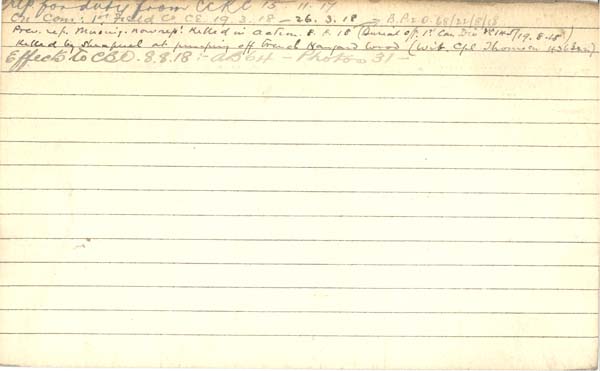 rep for duty from CCRC 15 11. 17
On Com: 1st Field Co C.E. 19.3.18 – 26.3.18 B.P2 O.68/22/8/18
Prev. rep. Missing. now rep. Killed in action. 8.8.18 (Burial Of. 1st Can Div 19.8.18)
Killed by Shrapnel at jumping off trench Hangard Wood (Wit Cpl Thomson
Effects to CBO. 8.8.18 :- AB64 – Photos 31 –